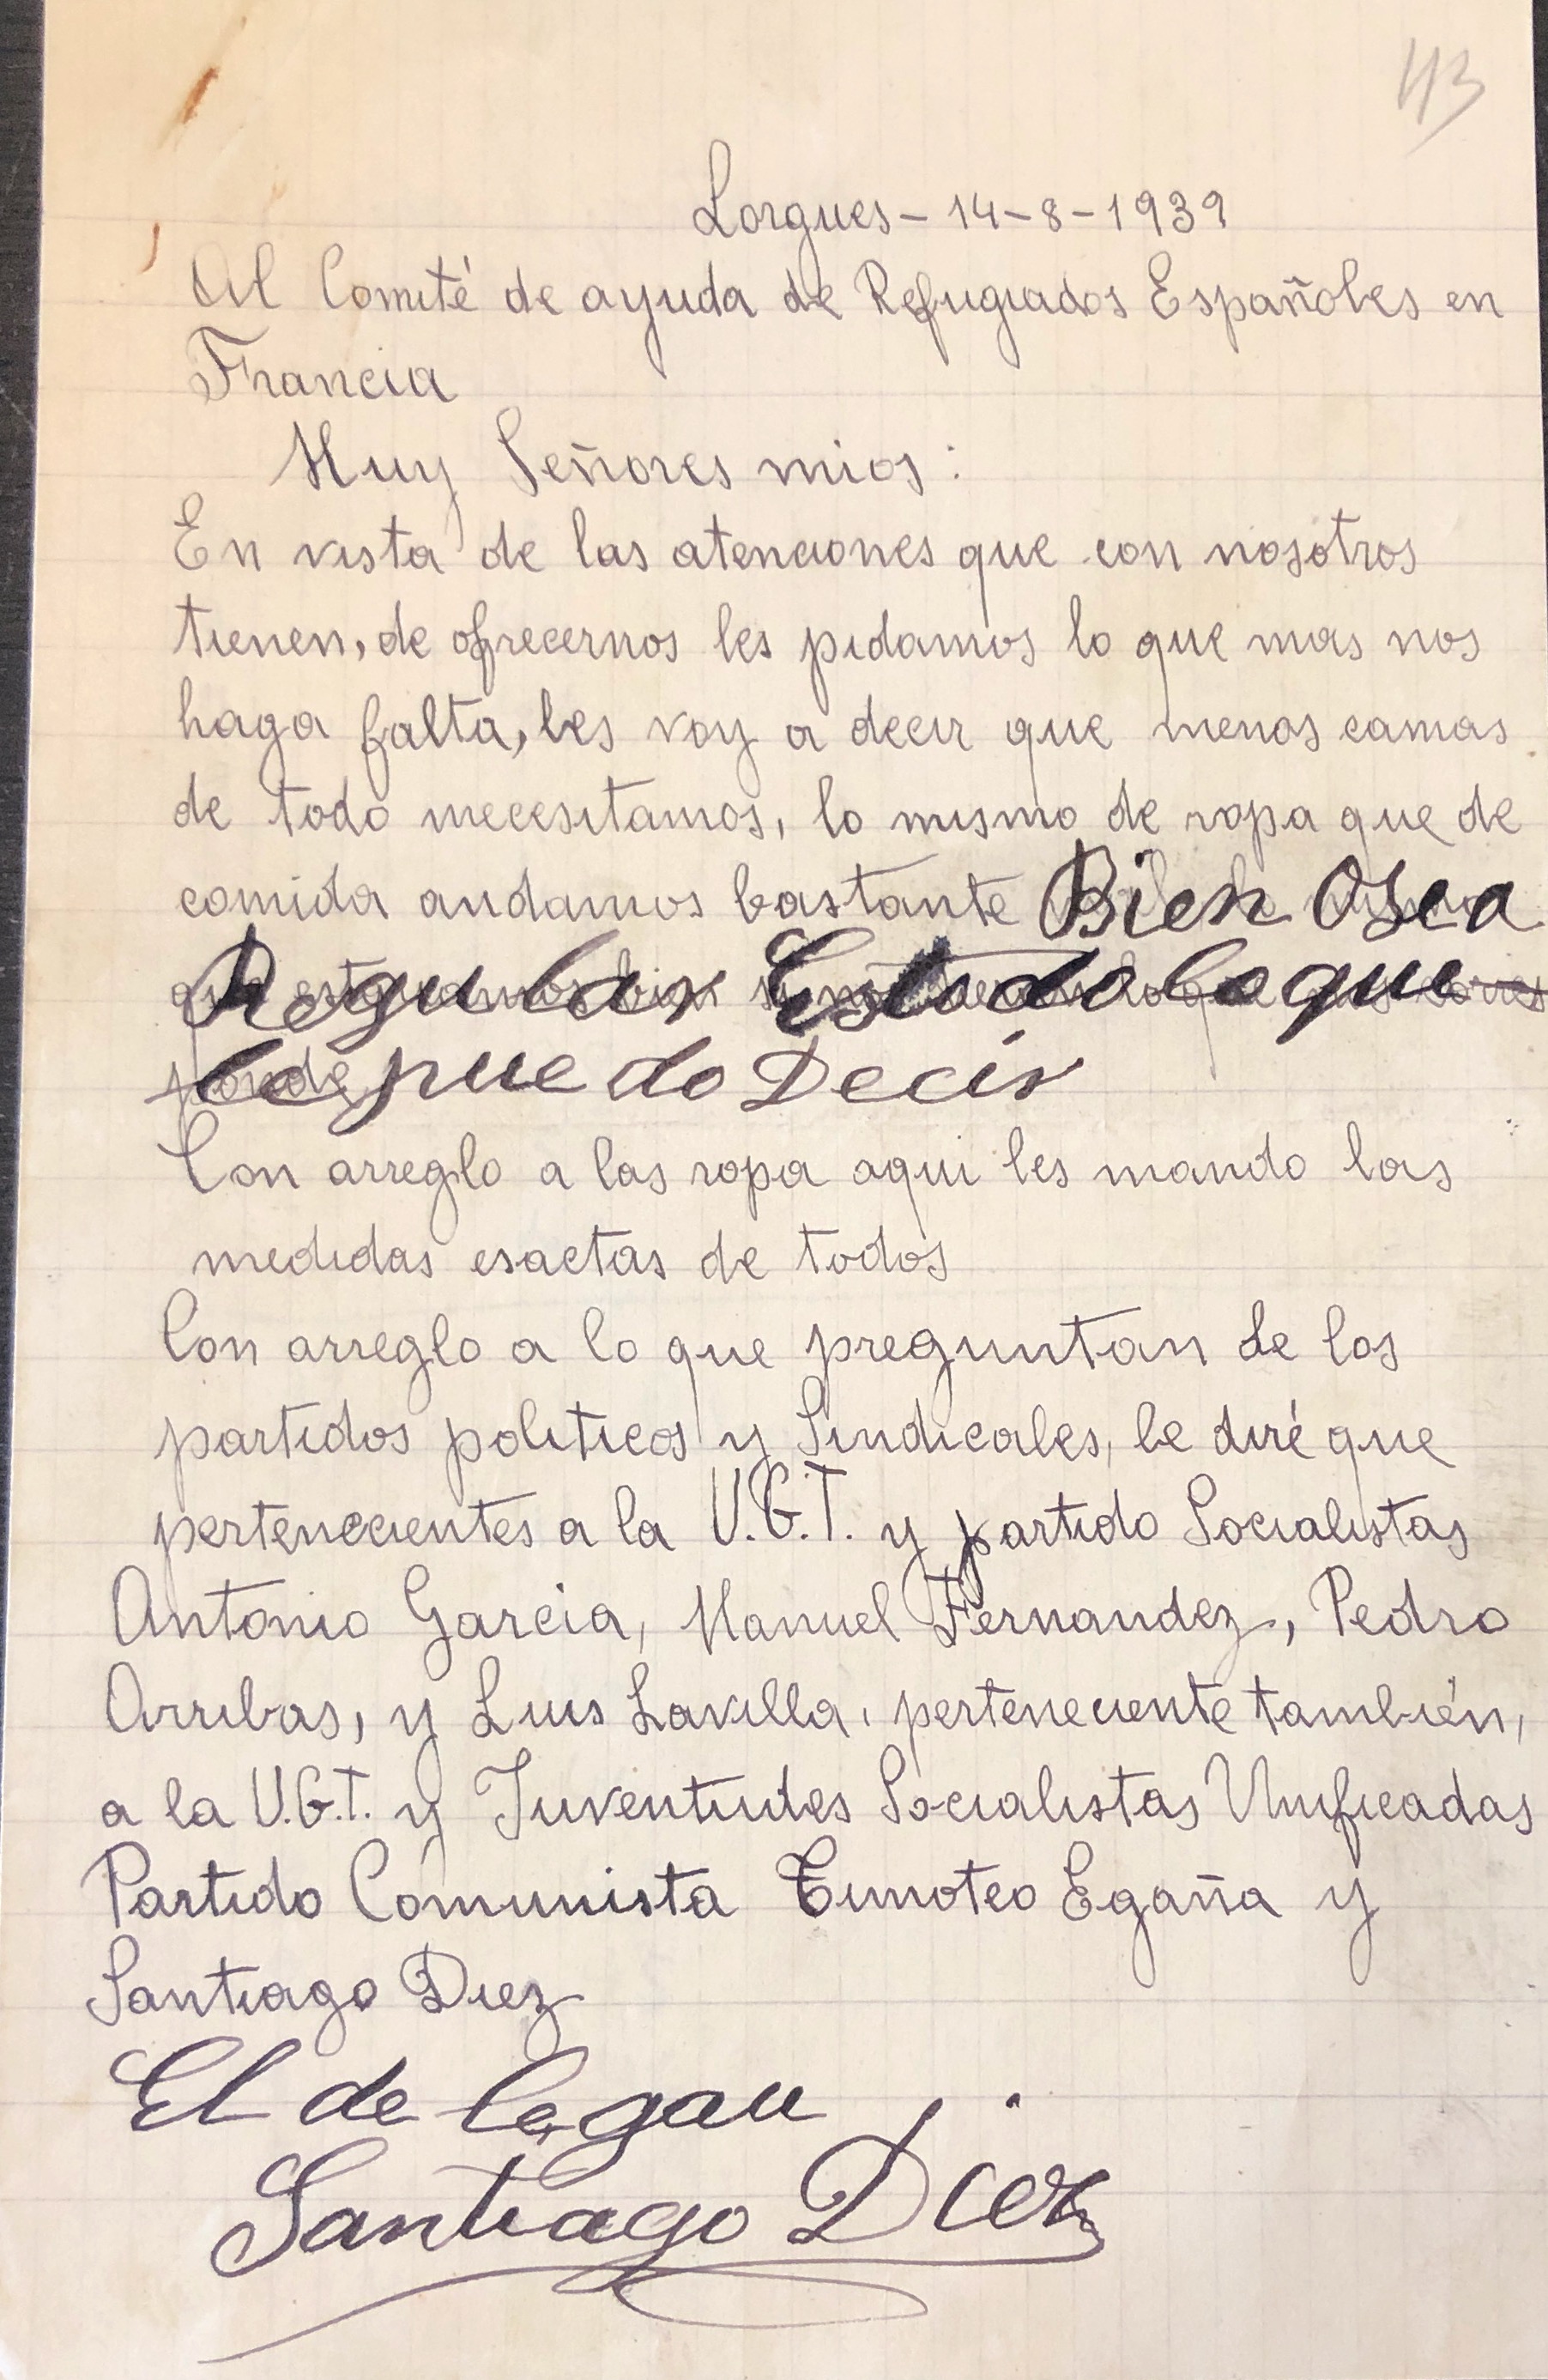 43
Lorgues - 14 - 8 - 1939
Al Comité de ayuda de Refugiados Españoles en
Francia
Muy Señores mios:
En vista de las atenciones que con nosotros
tienen, de ofrecernos les pidamos lo que mas nos
haga falta, les voy a decir que menos camas
de todo necesitamos, lo mismo de ropa que de
comida andamos bastante Bien Osea
Regular Esto do lo que
le puedo Decir
Con arreglo a las ropa aqui les mando las
medidas esactas de todos
Con arreglo a lo que preguntan de los
partidos politicos y Sindicales, le diré que
pertenecientes a la U.G.T. y partido Socialistas
Antonio Garcia, Manuel Fernandez, Pedro
Arribas, y Luis Lavilla, perteneciente también,
a la U.G.T. y Juventudes Socialistas Unificadas
Partido Comunista Timoteo Egaña y
Santiago Diez
El de legau
Santiago Diez